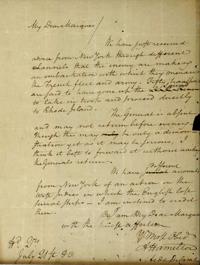 My Dear Marquis
We have just received
advice from New York through different
channels that the enemy are making
an embarkation with which they menace
the French fleet and army. Fifty
are said to have gone up the
to take in troops and proceed directly
to Rhode Island.
The General is absent
and may not return before evening
though this may be only a demon-
stration yet as it may be serious, I
think it best to forward it without waiting
the Generals return.
We have different accounts
from New York of an action in the
West Indies in which the English lost
several ships. I am inclined to credit
them.
I am My Dear Marquis
with the
Yr. Most Obed
A Hamilton
Aide De Camp
Hd. Qrs.
July 21st 80